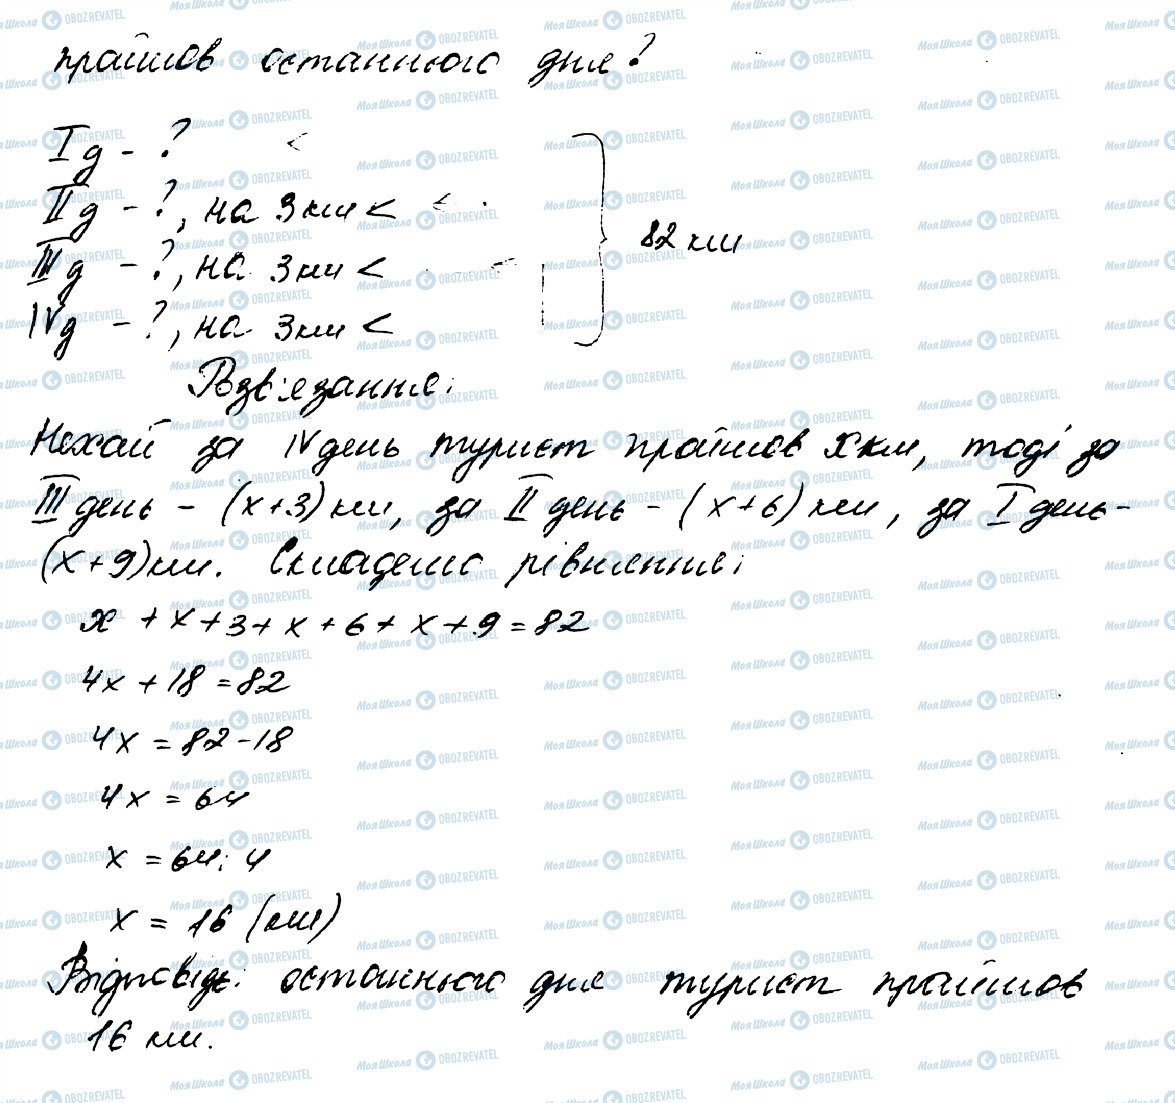 пройшов останнього дня?
I д - ? <
II д - ?, на 3 км <
III д - ?, на 3 км <
82 км
IV д - ?, на 3 км <
Розв'язання:
Нехай за IV день турист пройшов x км, тоді за
III день - (x+3) км, за II день - (x+6) км, за I день -
(x+9) км. Складемо рівняння:
x + x + 3 + x + 6 + x + 9 = 82
4x + 18 = 82
4x = 82 - 18
4x = 64
x = 64 : 4
x = 16 (км)
Відповідь: останнього дня турист пройшов
16 км.
Моя Школа OBOZREVATEL